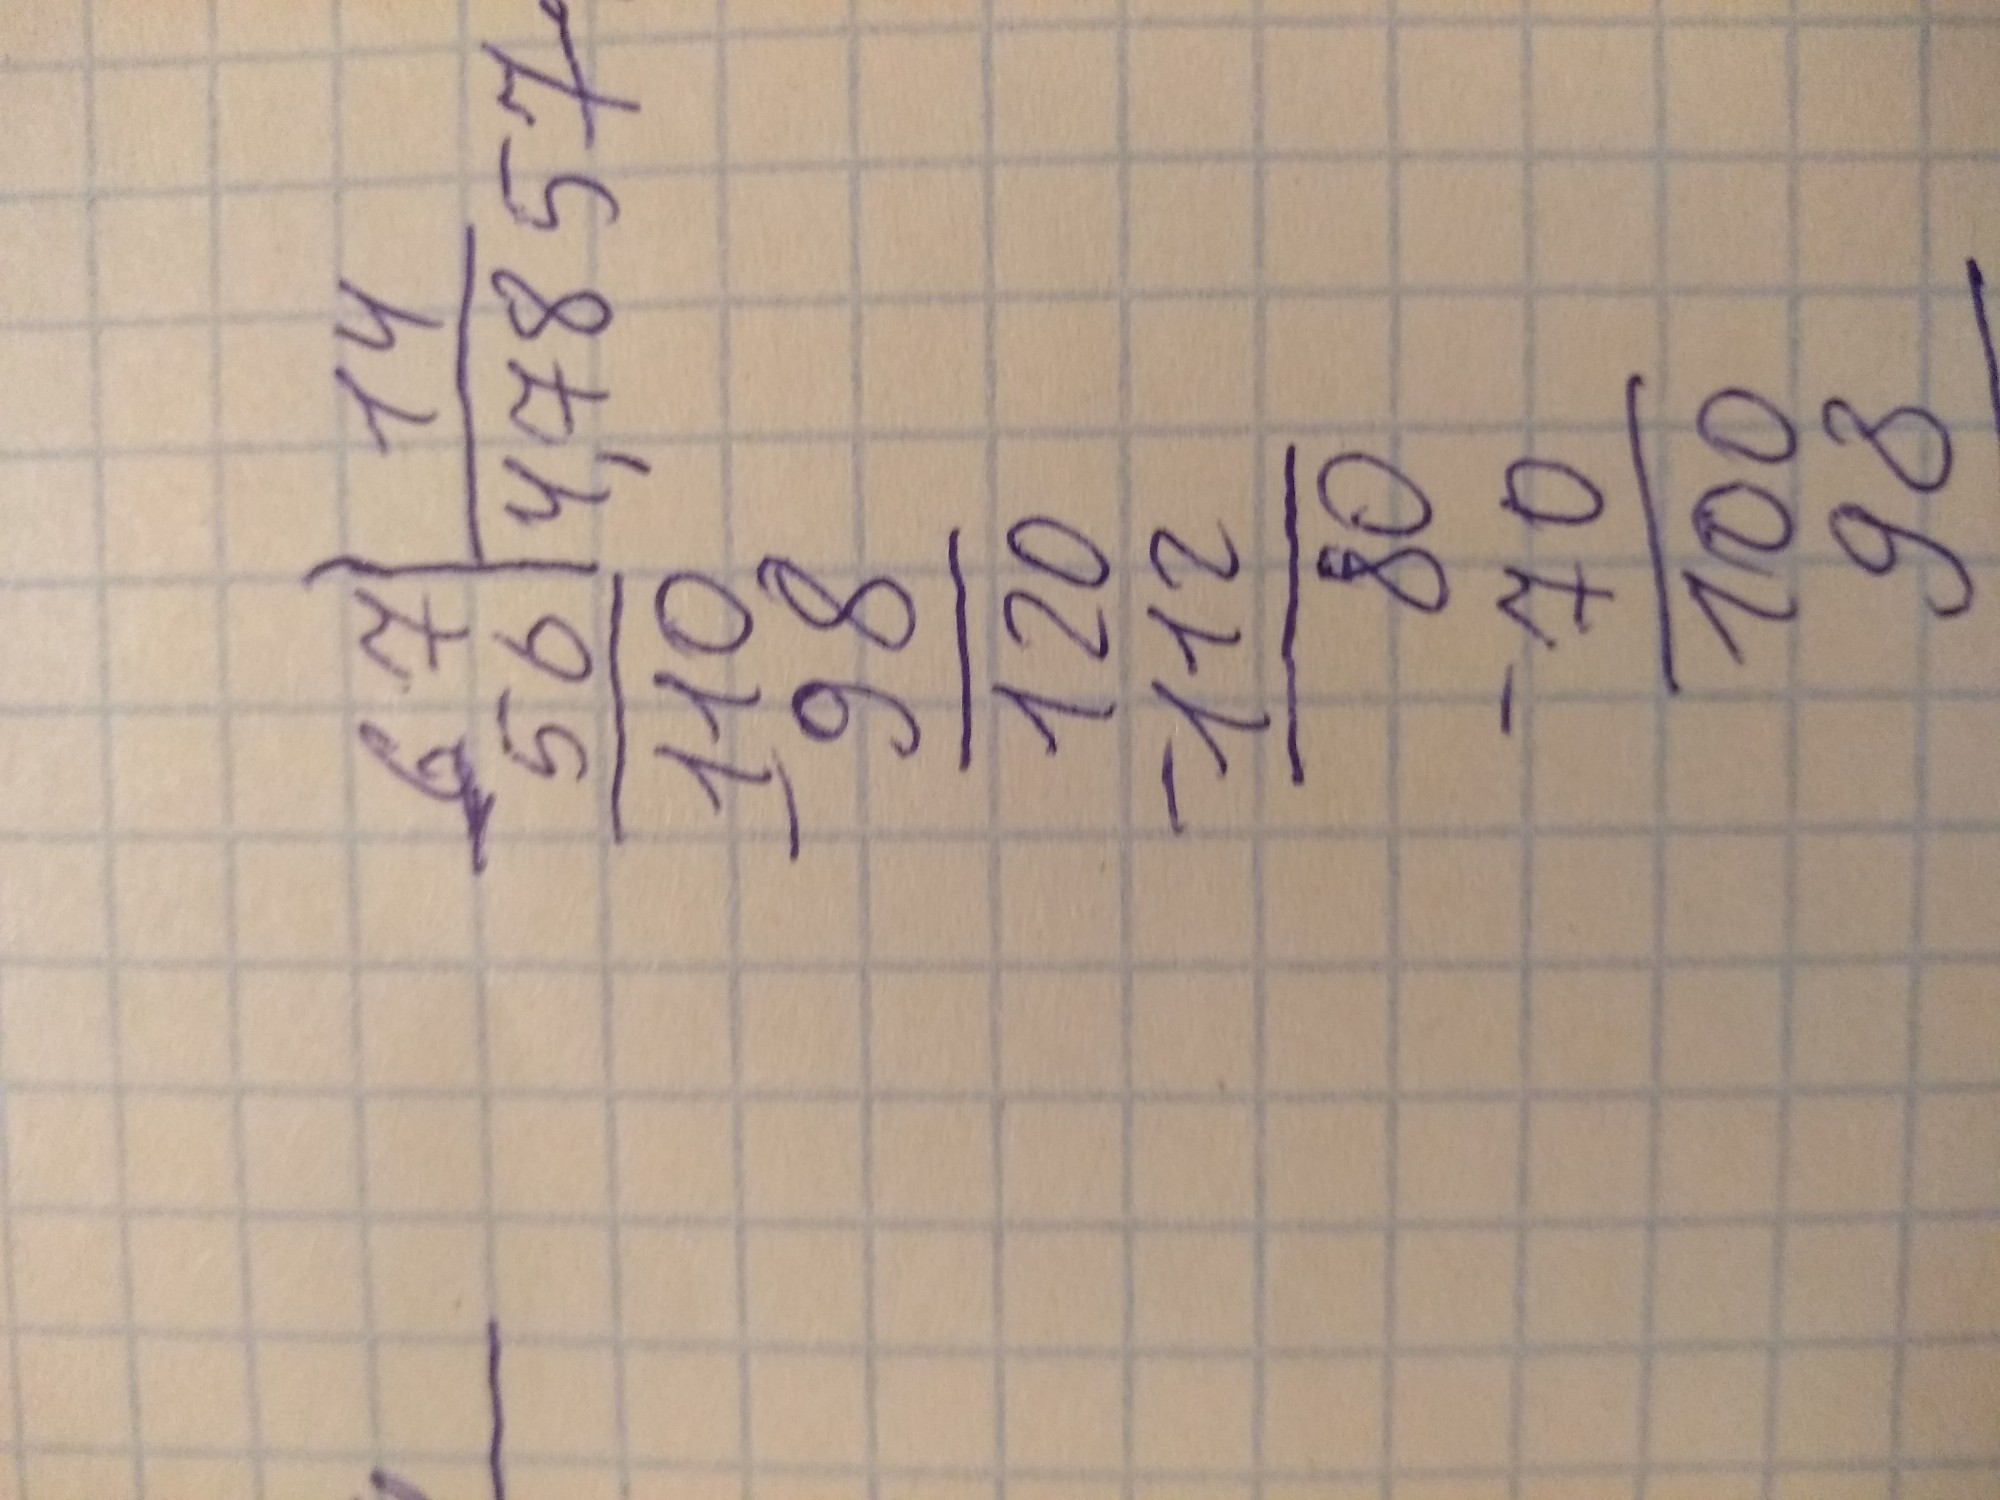 67 14
56 4,7857
110
98
120
-112
80
-70
100
98